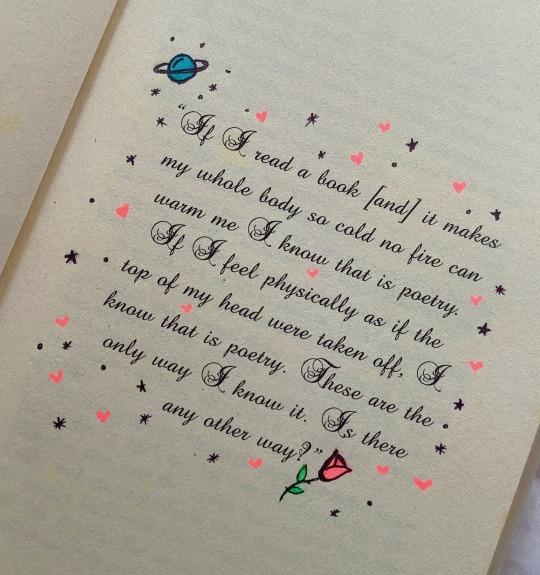 “If I read a book [and] it makes
my whole body so cold no fire can
warm me I know that is poetry.
If I feel physically as if the
top of my head were taken off, I
know that is poetry. These are the
only way I know it. Is there
any other way?”